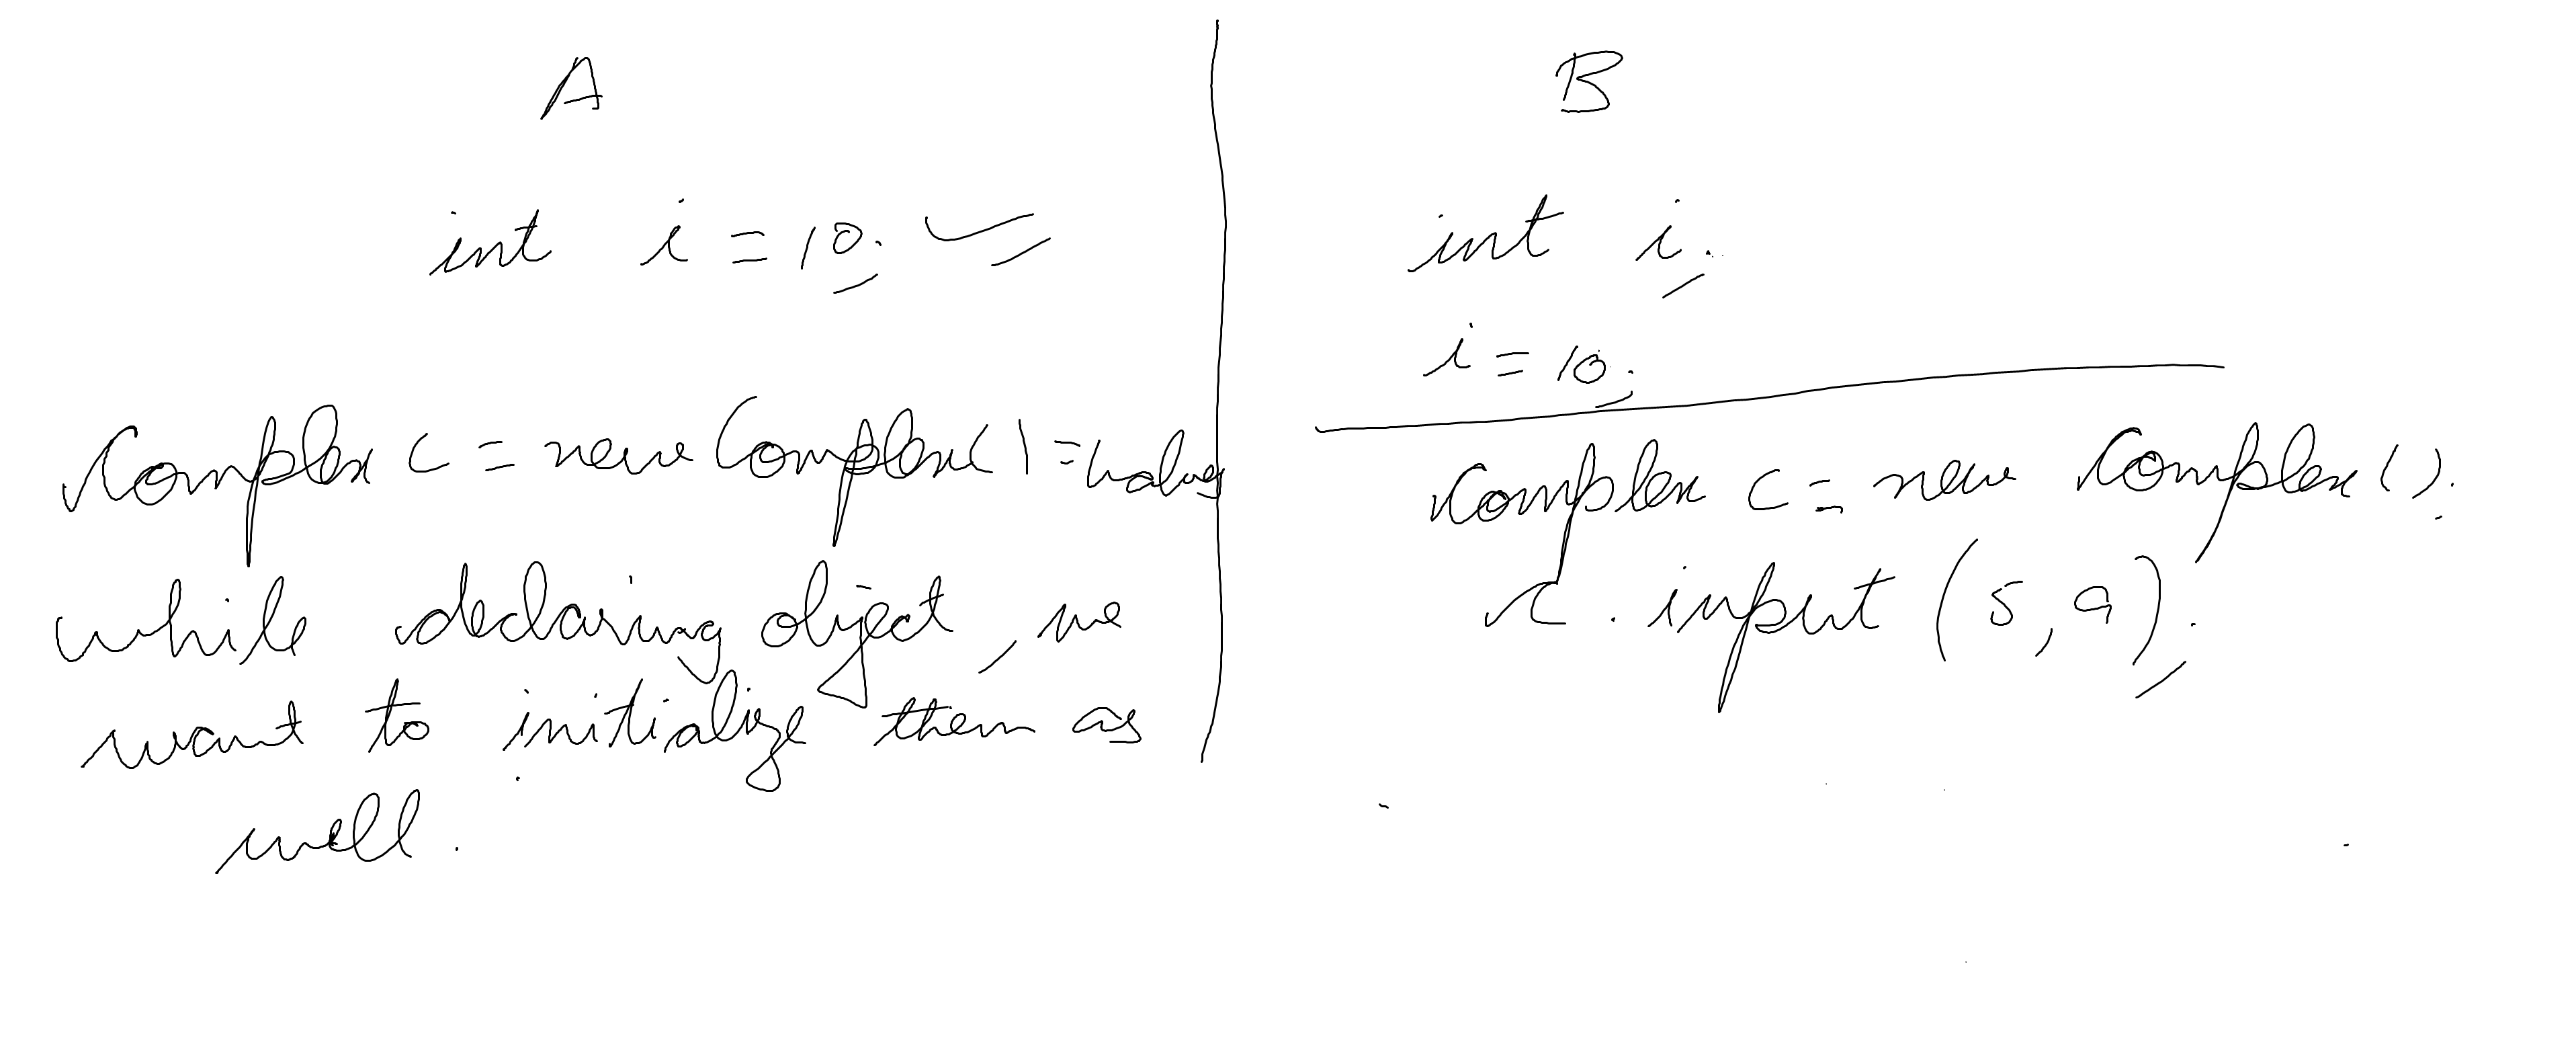 A
int i = 10;
Complex c = new Complex() = values
while declaring object, we
want to initialize them as
well.
B
int i;
i = 10;
Complex c = new Complex();
c.input(5,9);